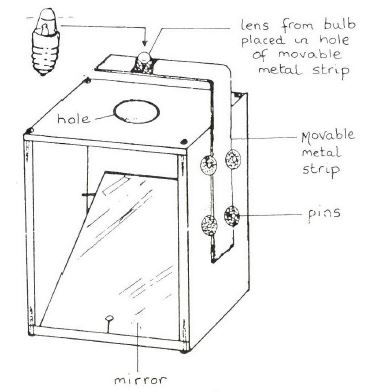 lens from bulb
placed in hole
of movable
metal strip
hole
Movable
metal
strip
pins
mirror